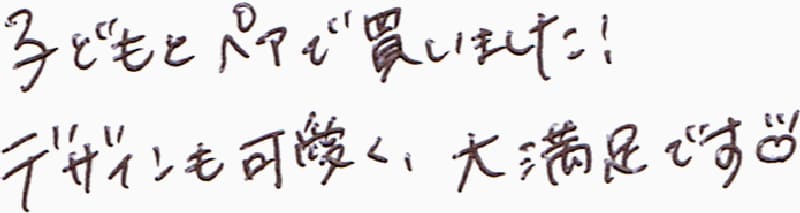 子どもとペアで買いました!
デザインも可愛く、大満足です